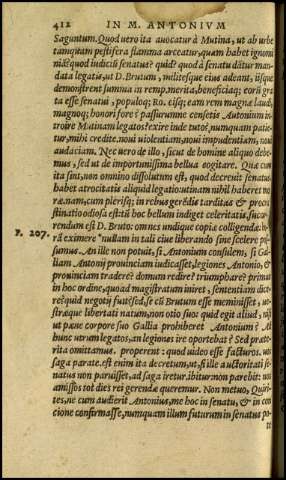 412 IN M. ANTONIVM
Saguntum. Quod uero ita auocatur à Mutina, ut ab urbe
tamquam pestifera flamma arceatur, quam habet ignomi
niã? quod iudicij senatus? quid? quod à senatu dãtur man
data legatis, ut D. Brutum, militesque eius adeant, iisque
demonstrent summa in remp. merita, beneficiaq; eorũ gra
ta esse senatui, populoq; Ro. eisq; eam rem magnæ laudi,
magnoq; honori fore? passurumne censetis Antonium in-
troire Mutinam legatos? exire inde tutò? numquam patie-
tur, mihi credite. noui uiolentiam, noui impudentiam, noui
audaciam. Nec uero de illo, sicut de homine aliquo debe-
mus, sed ut de importunissima bellua cogitare. Quæ cum
ita sint, non omnino dissolutum est, quod decreuit senatus.
habet atrocitatis aliquid legatio: utinam nihil haberet mo-
ræ. nam, cum plerisq; in rebus gerẽdis tarditas & procra
stinatio odiosa est: tũ hoc bellum indiget celeritatis. succur-
rendum est D. Bruto: omnes undique copiæ colligendæ: ho
P. 207. rã eximere *nullam in tali ciue liberando sine scelere pos-
sumus. An ille non potuit, si Antonium consulem, si Gal-
liam Antonij prouinciam iudicasset, legiones Antonio, &
prouinciam tradere? domum redire? triumphare? primus
in hoc ordine, quoad magistratum iniret, sententiam dice-
re? quid negotij fuit? sed, se cũ Brutum esse meminisset, ue-
stræque libertati natum, non otio suo: quid egit aliud, nisi
ut pæne corpore suo Gallia prohiberet Antonium? Ad
hunc utrum legatos, an legiones ire oportebat? Sed præte-
rita omittamus. properent: quod uideo esse facturos. uos
saga parate. est enim ita decretum, ut, si ille auctoritati se-
natus non paruisset, ad saga iretur. ibitur: non parebit: nos
amissos tot dies rei gerendæ queremur. Non metuo, Quiri-
tes, ne cum audierit Antonius, me hoc in senatu, & in con
cione confirmasse, numquam illum futurum in senatus po
te